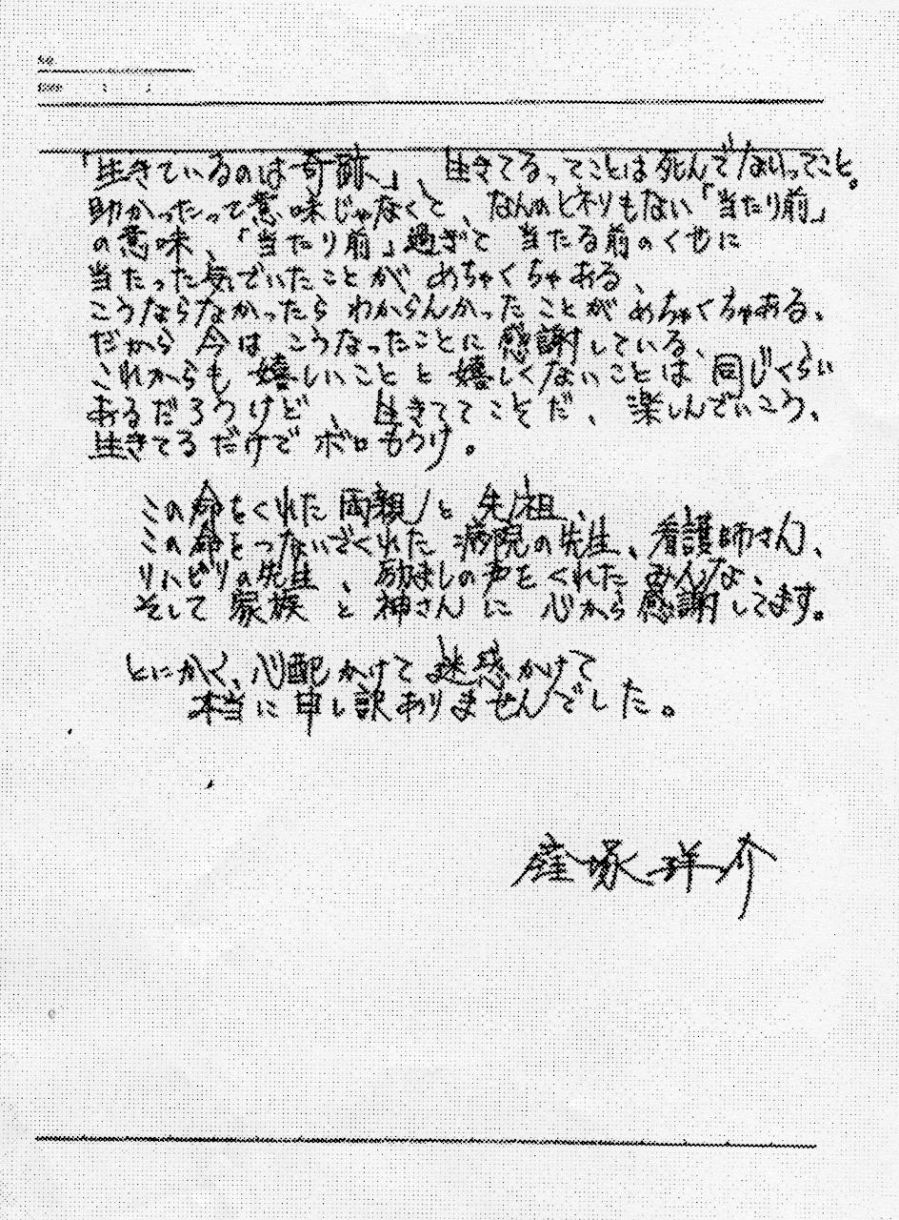 No.
「生きているのは奇跡」、生きてるってことは死んでないってこと。
助かったって意味じゃなくて、なんのヒネリもない「当たり前」
の意味、「当たり前」過ぎて 当たる前のくせに
当たった気でいたことが めちゃくちゃある、
こうならなかったら わからんかった ことが めちゃくちゃある、
だから 今は こうなったことに 感謝している、
これからも 嬉しいこと と 嬉しくないことは 同じくらい
あるだろうけど、生きててこそだ、楽しんでいこう、
生きてる だけで ボロもうけ。
この命をくれた 両親と 先祖、
この命をつないでくれた 病院の先生、看護師さん、
リハビリの先生、励ましの声をくれた みんな、
そして 家族 と 神さん に 心から 感謝してます。
とにかく、心配かけて 迷惑かけて
本当に 申し訳ありませんでした。
窪塚洋介